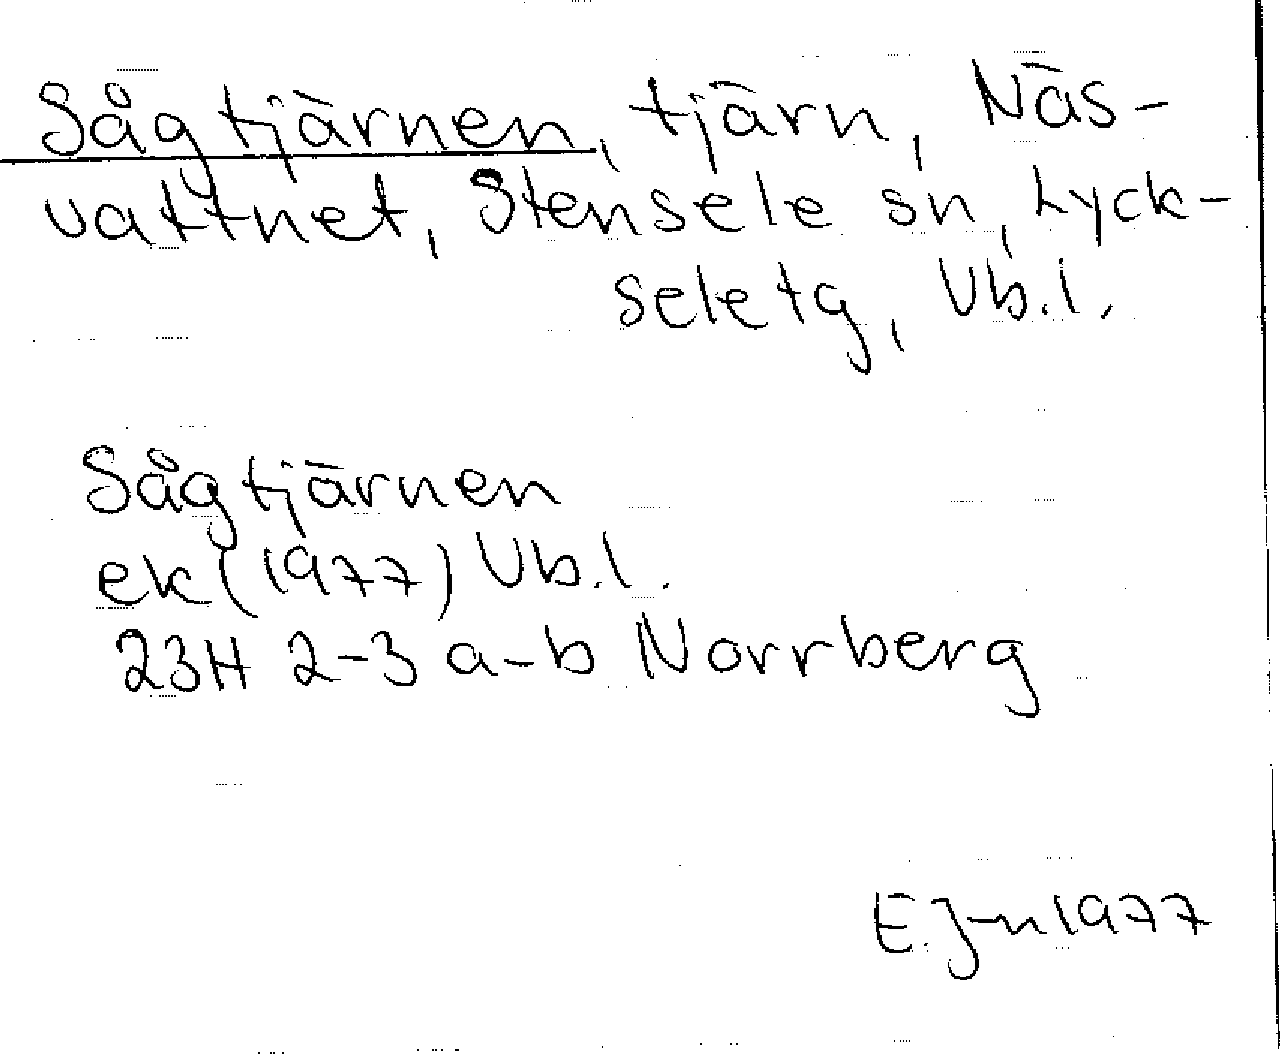 Sågtjärnen, tjärn, Näs-
vattnet, Stensele sn, Lyck-
seletg, Vb.l.
Sågtjärnen
ek (1977) Vb.l.
23H 2-3 a-b Norrberg
E.J-n 1977